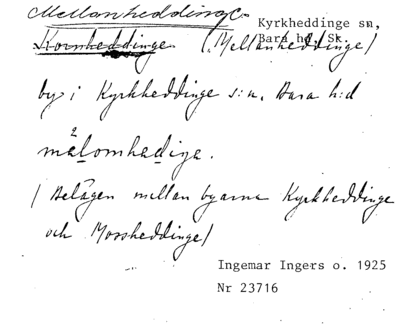 Mellanheddinge
Kyrkheddinge sn,
Bara hd, Sk.
Kornheddinge (Mellanheddinge)
by i Kyrkheddinge s:n, Bara h:d
mälomhediga.
(Belägen mellan byarne Kyrkheddinge
och Mossheddinge)
Ingemar Ingers o. 1925
Nr 23716